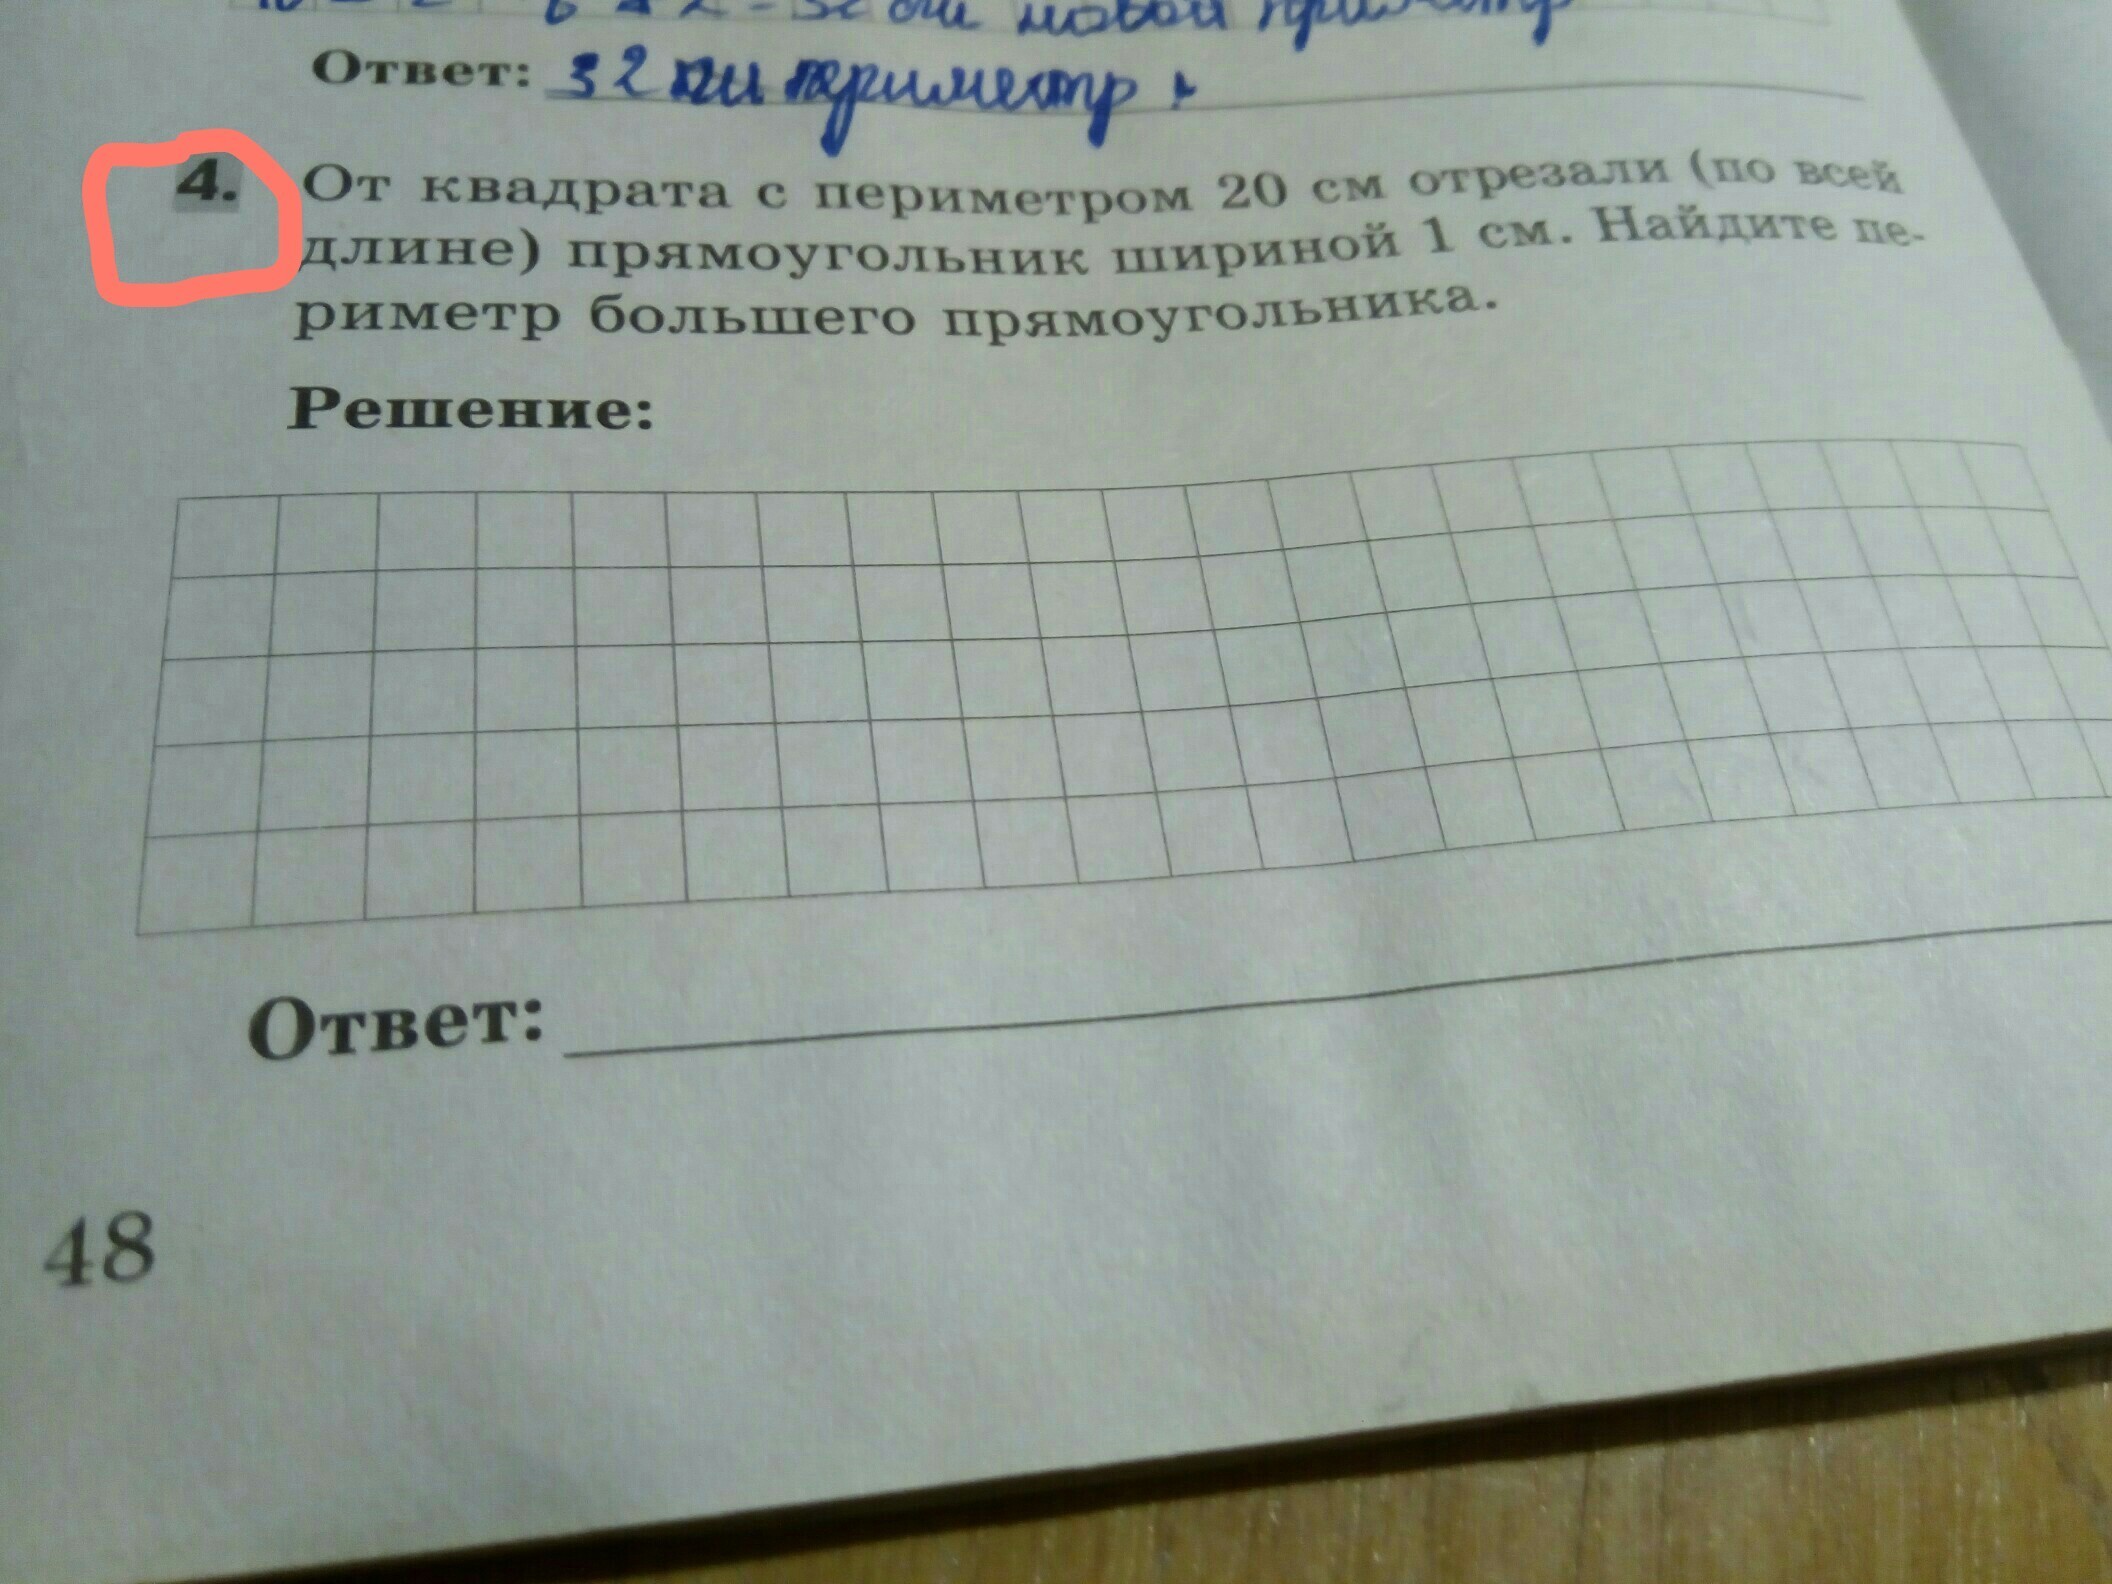 32 см новой периметр
Ответ: 32 см периметр.
4. От квадрата с периметром 20 см отрезали (по всей
длине) прямоугольник шириной 1 см. Найдите пе-
риметр большего прямоугольника.
Решение:
Ответ:
48